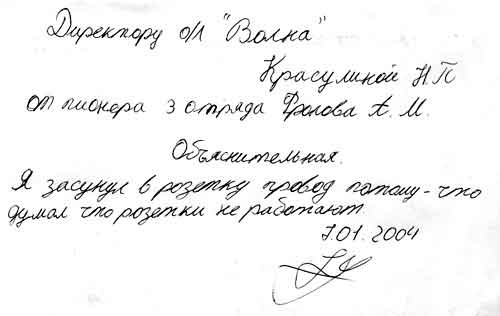 Директору о/л "Волна"
Красулиной Н.П
от пионера 3 отряда Фролова А. М.
Объяснительная.
Я засунул в розетку провод потому-что
думал что розетки не работают.
7.01.2004